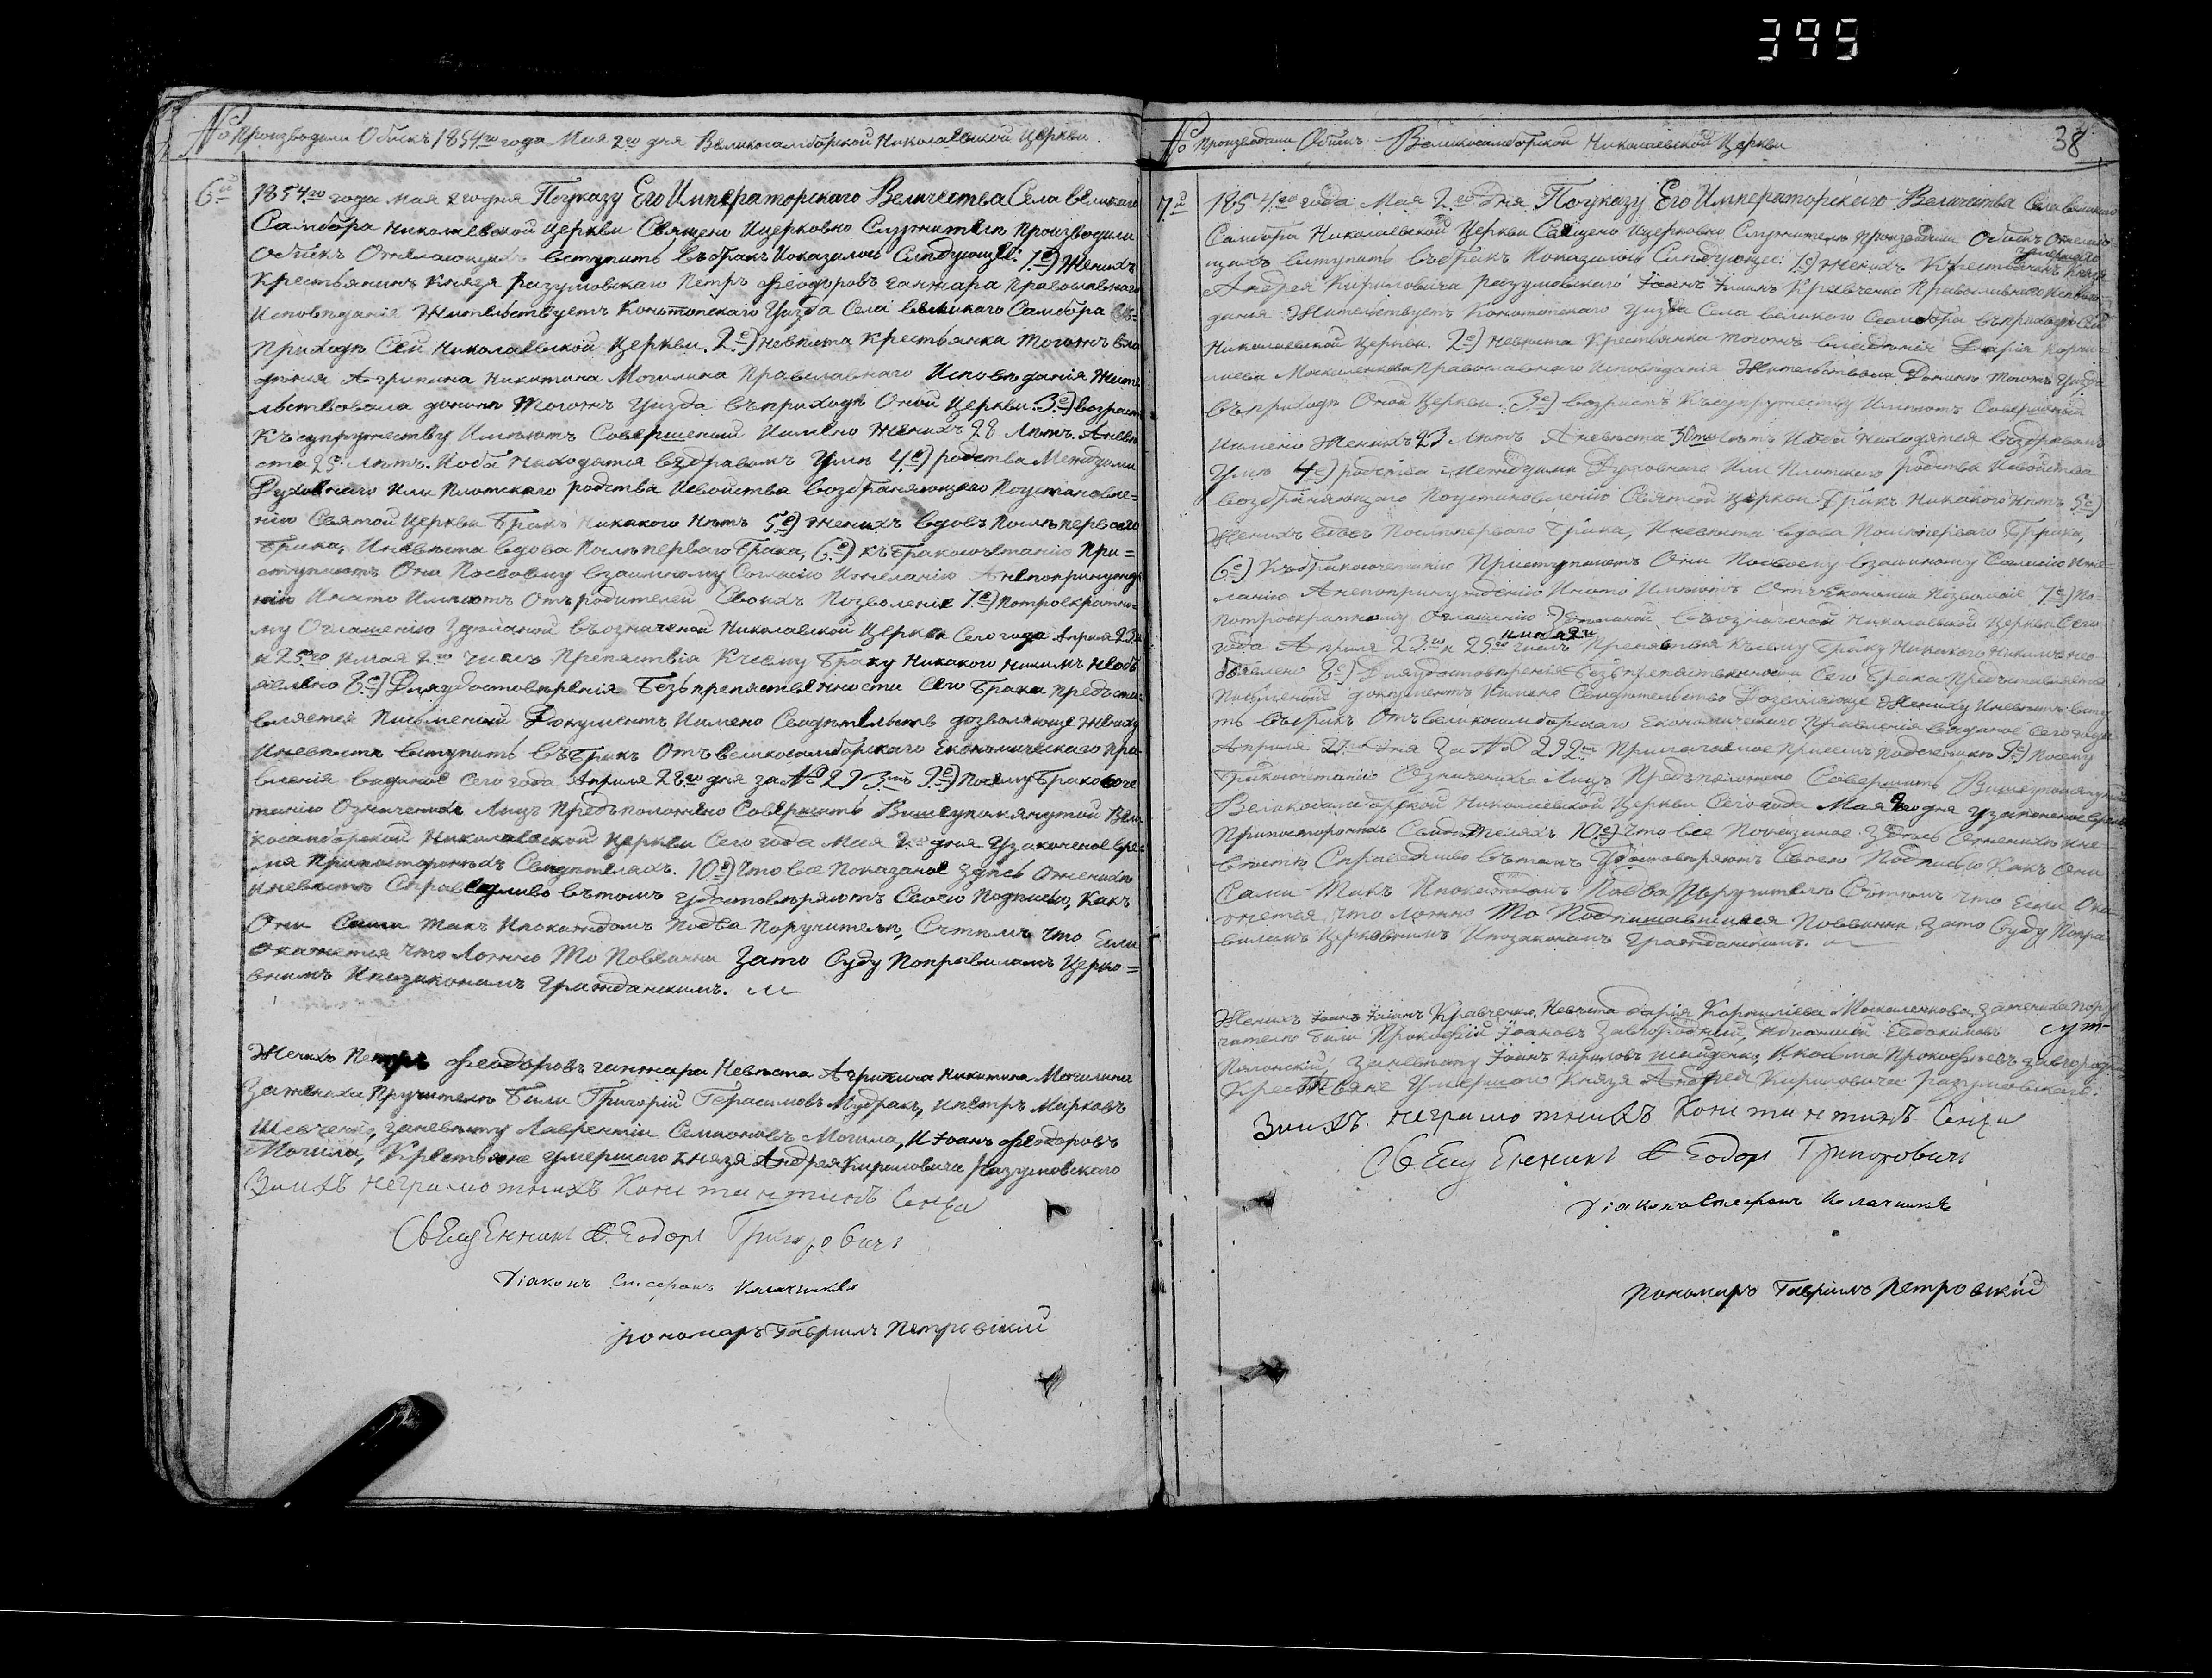 395
№ Производили Обискъ 1854го года Мая 2го дня Великосамборской Николаевской Церкви
6й
1854го года Мая 2 го дня Поуказу Его Императорского Величества Села Великого
Самбора Николаевской Церкви Священо Ицерковно Служители производили
Обискъ Ожелающихъ вступить въбракъ Ипоказалось Слидующее: 1е) Женихъ
Крестьянинъ Князя Разумовскаго Петръ Феодоровъ ганжара Православнаго
Исповѣданія Жительствуетъ Конотопскаго Уизда Села великого Самбора Въ=
Приходѣ Сей Николаевской Церкви. 2е) Невѣста Крестьянка Тогожъ вла
дѣнія Агрипина Никитина Могилина Православнаго Исповѣданія Жите
льствовала донинѣ Тогожъ Уизда въприходѣ Оной Церкви. 3е) возрастъ
Къ супружеству Имѣютъ Совершеный Иимено Женихъ 28 Лѣтъ. Аневѣ
ста 25 лѣтъ. Иоба Находятся въздравомъ Умѣ 4е) родства Междуими
Духовнаго Или Плотскаго родства Исвойства возбраняющаго Поустановле=
нію Святой Церкви Бракъ Никакого Нѣтъ 5е) Женихъ вдовъ Послѣпервого
брака, Иневѣста вдова Послѣпервагобрака, 6е) къбракосочѣтанію При=
ступаютъ Они Посвоему взаимному Согласію Ижеланію Анепопринужде
нію Инато Имѣютъ Отъродителей Своихъ Позволеніе 7е) Потроекратно=
му Оглашенію Здѣланой въозначеной Николаевской Церкви Сего года Апреля 23го
и 25го Имая 2го чиселъ Препяствія Ксиему браку Никакого Никимъ Необъ
явлено 8е) Дляудостовѣренія Безъпрепяственности Сего Брака предъста
вляется Писменний Документъ Иимено Свидѣтельство дозволяюще Жениху
Иневѣстѣ вступить въбракъ Отъвеликосамборскаго Економическаго пра
вленія виданое Сего года Апреля 28го дня за № 293мъ 9е) Посему Бракосоче
танію Означенихъ Лицъ Предъположено Совершить Вишеупомянутой Вели
косамборской Николаевской Церкви Сего года Мая 2го дня Узаконеное вре=
мя Припосторонихъ Свидѣтеляхъ. 10е) Что все Показаное здѣсь Оженихѣ
иневѣстѣ Справедливо вътомъ Удостовѣряютъ Своею Подписью, Какъ
Они Сами Такъ Ипокаждомъ Подва Поручителя, Стѣмъ Что Если
Окажется что Ложно То Повинни Зато Суду Поправиламъ Церко=
внимъ Ипозаконамъ Гражданскимъ.
Женихъ Петръ Феодоровъ ганжара Невѣста Агрипина Никитина Могилина
Зажениха Пручители Били Григорій Герасимовъ Мудракъ, ипетръ Марковъ
Шевченко, Заневѣсту Лаврентій Семіоновъ Могила, И Іоанъ Феодоровъ
Могила, Крестьяне умершаго Князя Андрея Кириловича Разумовскаго
Заихъ Неграмотнихъ Константинъ
СвЕщЕнникъ ФЕодоръ Григоровичъ
Діаконъ Стефанъ
Пономаръ Гавриилъ Петровскій
№ Производили Обискъ Великосамборской Николаевской Церкви
38
7й
1854го года Мая 2го дня Поуказу Его Императорскаго Величества Села великаго
Самбора Николаевской Церкви Священо Ицерковно Служители производили Обискъ Ожелаю
щихъ вступить въбракъ Показалось Слидующее: 1е) Женихъ Крестьянинъ умершаго Князя
Андрея Кириловича разумовскаго Іоанъ Кравченко Православнаго Исповѣ
данія Жительствуетъ Конотопскаго Уизда Села великого Самбора въприходѣ Сей
Николаевской Церкви. 2е) Невѣста Крестьянка Тогожъ владѣнія Дарія Корни=
лиева Москаленкова Православнаго Исповѣданія Жительствовала Донинѣ Тогожъ Уизда
въприходѣ Оной Церкви. 3е) возрастъ Къ супружеству Имѣютъ Совершеный
Иимено Женихъ 23 Лѣтъ Аневѣста 30ть Лѣтъ Иоба Находятся въздравомъ
Умѣ 4е) родства Междуими Духовнаго Или Плотскаго родства Исвойства
возбраняющаго Поустановленію Святой Церкви Бракъ Никакого Нѣтъ 5е)
Женихъ вдовъ Послѣпервого брака, Иневѣста вдова Послѣпервого Брака,
6е) Къбракосочетанію Приступаютъ Они Посвоему взаимному Согласію Иже=
ланію Анепопринужденію Инато Имѣютъ Отъ Економіи Позволеніе 7е) По=
потроекратному оглашенію Здѣланой въозначеной Николаевской Церкви Сего
года Апреля 23го и 25го имая 2го чиселъ Препяствія Късему браку Никакого Никимъ Нео=
бъявлено 8е) Дляудостовѣренія Безъпрепяственности Сего Брака Предъставляется
Писменой документъ Иимено Свидѣтельство Дозволяюще Жениху Иневѣстѣ всту
ть въбракъ Отъвеликосамборскаго Економическаго Правленія виданое Сего года
Апреля 27го дня За № 292мъ Прилагаемое Присемъ Подскрепою 9е) Посему
Бракосочетанію Означенихъ Лицъ Предъположено Совершить Вишеупомянутой
Великосамборской Николаевской Церкви Сего года Мая 2го дня Узаконеное время
Припосторонихъ Свидѣтеляхъ 10е) Что все Показаное Здѣсь Оженихѣ Ине=
вѣстѣ Справедливо вътомъ Удостовѣряютъ Своею Подписью Какъ Они
Сами Такъ Ипокаждомъ Подва Поручителя Стѣмъ Что Если Ока=
жется что ложно То Подписавшиися Повинни Зато Суду Попра=
виламъ Церковнимъ Ипозаконамъ Гражданскимъ.
Женихъ Іоанъ Кравченко, Невѣста Дарія Корнилиева Москаленкова, Зажениха Пору
чители Били Прокофій Іоановъ Завгородній, Евдокимовъ
Заневѣсту Іоанъ Кириловъ Шайденко, Икозма Прокофьевъ Завгородній
Крестьяне Умершаго Князя Андрея Кириловича разумовскаго.
Заихъ Неграмотнихъ Константинъ
СвЕщЕнникъ ФЕодоръ Григоровичъ
Діаконъ Стефанъ
Пономаръ Гавриилъ Петровскій